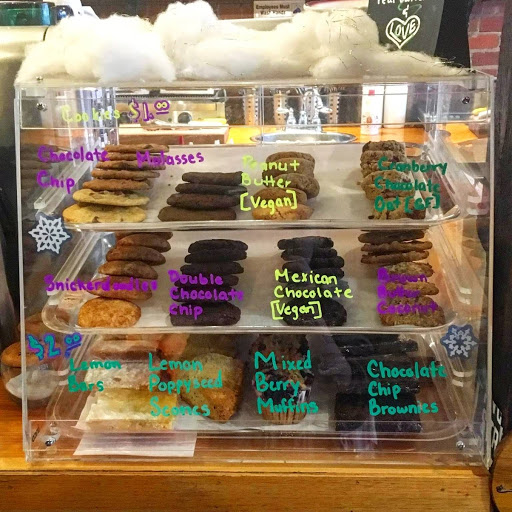 Employees Must
Wash Hands
LOVE
Cookies $1.00
Chocolate
Chip
Molasses
Peanut
Butter
[Vegan]
Cranberry
Chocolate
Oat [GF]
Snickerdoodles
Double
Chocolate
Chip
Mexican
Chocolate
[Vegan]
Brown
Butter
Coconut
$2.00
Lemon
Bars
Lemon
Poppyseed
Scones
Mixed
Berry
Muffins
Chocolate
Chip
Brownies